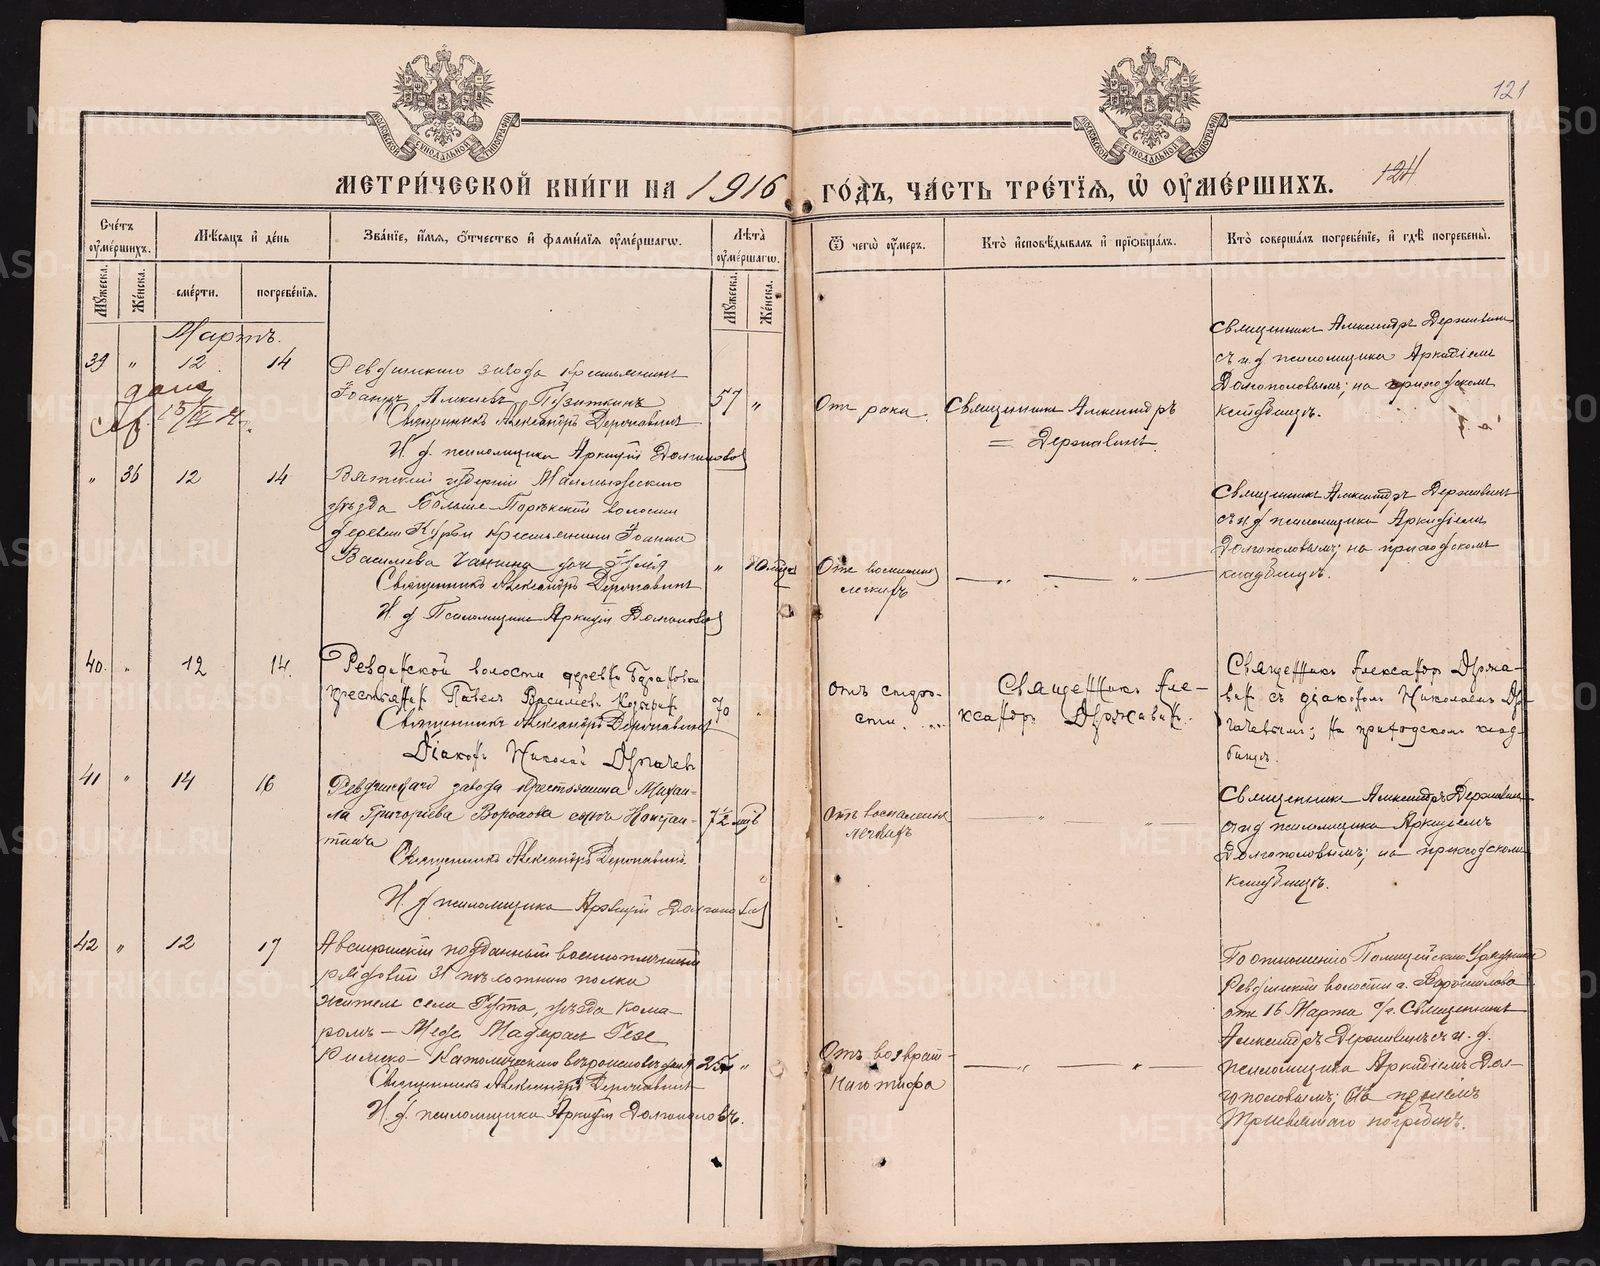 121
124
МОСКОВСКОЙ СѴНОДАЛЬНОЙ ТИПОГРАФІИ
МОСКОВСКОЙ СѴНОДАЛЬНОЙ ТИПОГРАФІИ
МЕТРИ́ЧЕСКОЙ КНИ́ГИ НА 1916 ГО́ДЪ, ЧА́СТЬ ТРЕ́ТІЯ, Ѡ҆ ОУ҆МЕ́РШИХЪ.
Сче́тъ оу҆ме́ршихъ.
Мꙋ́жеска.
Же́нска.
Мѣ́сяцъ и҆ де́нь
сме́рти.
погребе́нїѧ.
Зва́нїе, и҆́мѧ, ѻ҆́тчество и҆ фами́лїѧ оу҆ме́ршагѡ.
Лѣ́та оу҆ме́ршагѡ.
Мꙋ́жеска.
Же́нска.
Ѿ чегѡ̀ оу҆́меръ.
Кто̀ и҆сповѣ́дывалъ и҆ прїѡбща́лъ.
Кто̀ соверша́лъ погребе́нїе, и҆ гдѣ̀ погребены̀.
Мартъ.
39 " 12 14
Ревдинскаго завода крестьянинъ
Іоаннъ Алексѣевъ Пузаткинъ 57 "
Священникъ Александръ Державинъ
И. д. псаломщика Аркадій Долгополовъ
Отъ рака.
Священникъ Александръ
= Державинъ.
Священникъ Александръ Державинъ
съ и. д. псаломщика Аркадіемъ
Долгополовымъ; на приходскомъ
кладбищѣ.
" 36 12 14
Вятской губерніи Малмыжскаго
уѣзда Больше-Порѣкской волости
деревни крестьянина Іоанна
Васильева дочь Юлія "
Священникъ Александръ Державинъ
И. д. Псаломщика Аркадій Долгополовъ
Отъ воспаленія
легкихъ
Священникъ Александръ Державинъ
съ и. д. псаломщика Аркадіемъ
Долгополовымъ; на приходскомъ
кладбищѣ.
40. " 12 14.
Ревдинской волости деревни Барановки
крестьянинъ Павелъ Василіевъ 70
Священникъ Александръ Державинъ
Діаконъ Николай Дергачевъ
отъ старо-
сти.
Священникъ Але-
ксандръ Державинъ.
Священникъ Александръ Держа-
винъ съ діакономъ Николаемъ Дер-
гачевымъ; на приходскомъ клад-
бищѣ.
41 " 14 16
Ревдинскаго завода крестьянина Михаи-
ла Григорьева Воросова сынъ Констан- 7½ мѣс
тинъ
Священникъ Александръ Державинъ.
И. д. псаломщика Аркадій Долгополовъ
Отъ воспаленія
легкихъ
Священникъ Александръ Державинъ
съ и. д. псаломщика Аркадіемъ
Долгополовымъ; на приходскомъ
кладбищѣ.
42 " 12 17
Австрійскій подданный военноплѣнный
рядовой 31 пѣхотнаго полка
житель села Гута, уѣзда Кома-
ромъ – Медь Гезе
Римско-Католическаго вѣроисповѣданія 25 "
Священникъ Александръ Державинъ
И. д. псаломщика Аркадій Долгополовъ.
Отъ возврат-
наго тифа
По отношенію Полицейскаго Урядника
Ревдинской волости г. Ворошилова
отъ 16 Марта с/г. Священникъ
Александръ Державинъ съ и. д.
псаломщика Аркадіемъ Дол-
гополовымъ; съ пѣніемъ
Трисвятаго погребенъ.